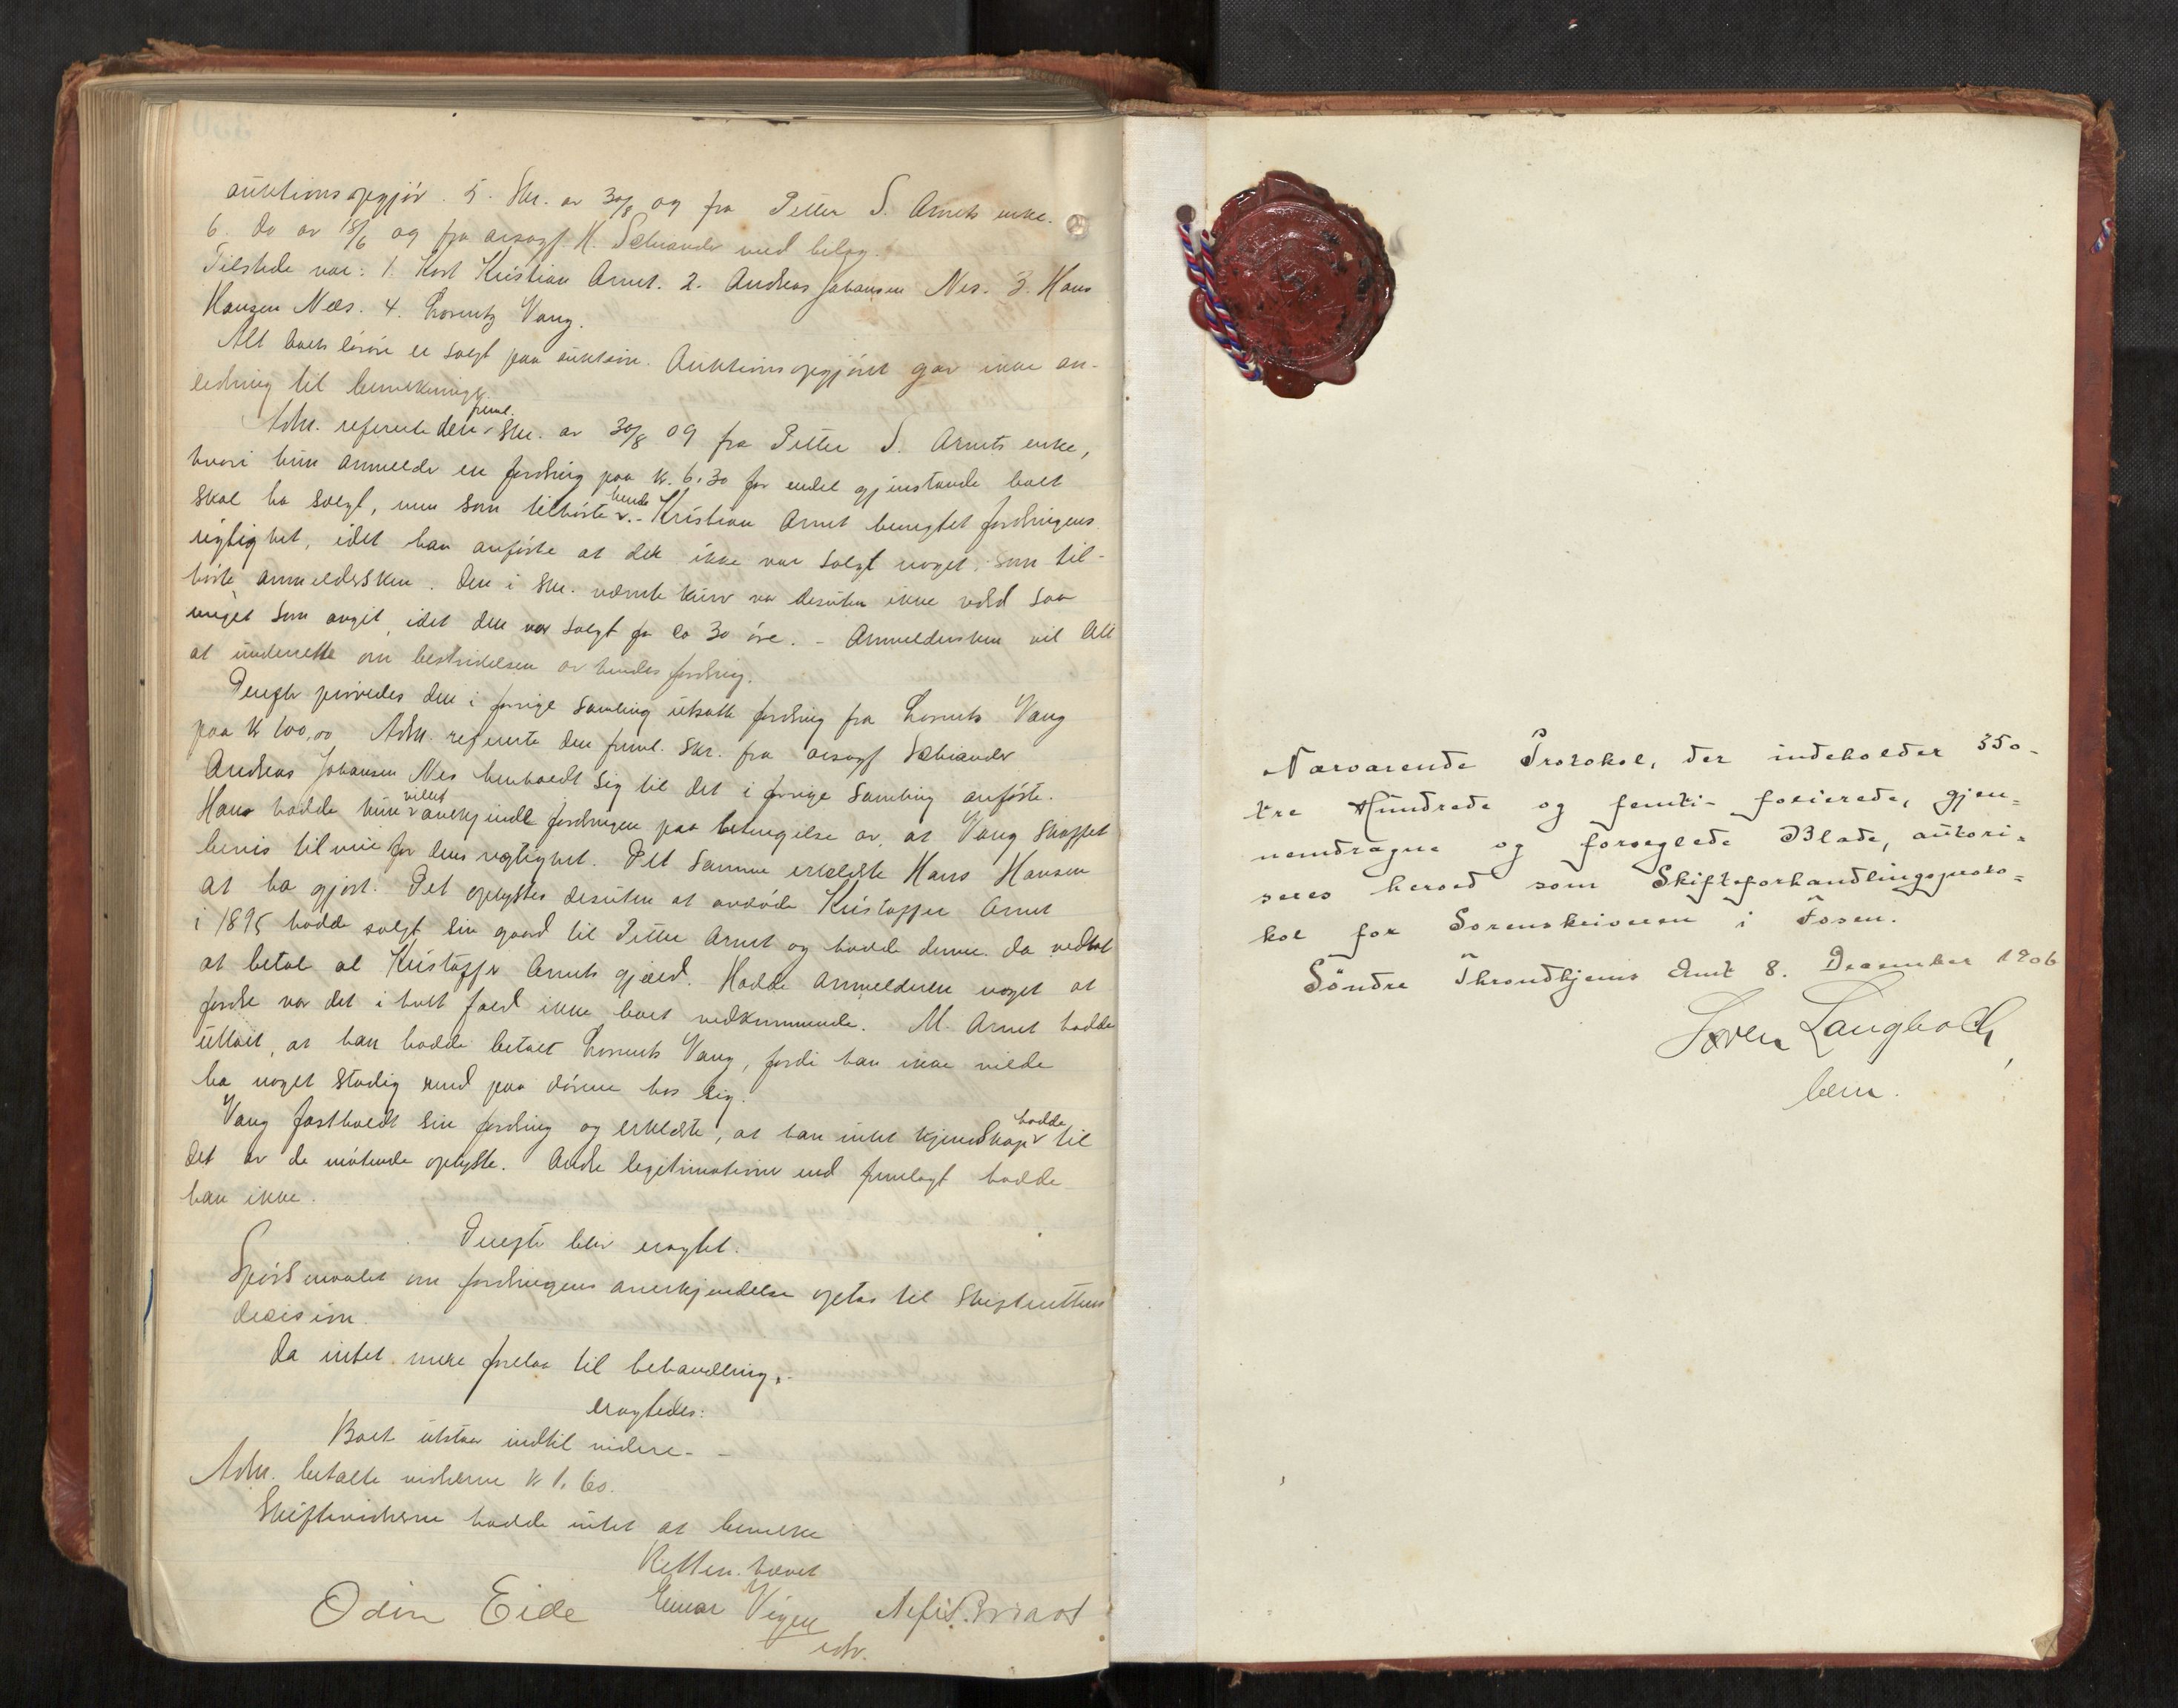 auktionsopgjør. 5. Skr. av 30/8 09 fra Petter S. Arnets enke.
6. do av 18/6 09 fra orsagf. H. Schiander med belæg.
Tilstede var: 1. Kristian Arnet. 2. Andreas Johansen Nes. 3. Hans
Hansen Næs. 4. Lorentz Vang.
Alt boets løsøre er solgt paa auktion. Auktionsopgjøret gav ikke an-
ledning til bemerkninger.
Adm. refererte den freml. Skr. av 30/8 09 fra Petter S. Arnets enke,
hvori hun anmelder en fordring paa kr. 6.30 for endel gjenstande boet
skal ha solgt, men som tilhørte hende. - Kristian Arnet benegtet fordringens
rigtighet, idet han anførte at der ikke var solgt noget, som til-
hørte anmeldersken. Den i skr. nævnte kurv var desuten ikke værd saa
meget som angit, idet den var solgt for ca 30 øre. - Anmeldersken vil bli
at underrette om bestridelsen av hendes fordring.
Derefter prøvedes den i forrige samling utsatte fordring fra Lorents Vang
paa kr 100,00 Adm. refererte den freml. skr. fra orsagf Schiander
Andreas Johansen Nes henholdt sig til det i forrige samling anførte.
Han hadde kun villet anerkjende fordringen paa betingelse av, at Vang skaffet
bevis tilveie for dens rigtighet. Det samme erklærte Hans Hansen
at ha gjort. Det oplystes desuten at avdøde Kristoffer Arnet
i 1895 hadde solgt sin gaard til Petter Arnet og hadde denne da vedtat
at betale al Kristoffer Arnets gjæld. Hadde anmelderen noget at
fordre var det i hvert fald ikke boet vedkommende. M. Arnet hadde
uttalt, at han hadde betalt Lorents Vang, fordi han ikke vilde
ha noget stadig rend paa dørene hos sig.
Vang fastholdt sin fordring og erklærte, at han intet kjendskap hadde til
det av de møtende oplyste. Andre legitimationer end fremlagt hadde
han ikke.
Derefter blev eragtet.
Spørsmaalet om fordringens anerkjendelse optas til skifterettens
decision.
Da intet mere forelaa til behandling,
eragtedes:
Boet utstaar indtil videre. -
Adm. betalte vidnerne kr 1.60.
Skiftevidnerne hadde intet at bemerke
Retten hævet
Odin Eide Einar Vigen
edv.
Nærværende Protokol, der indeholder 350-
tre Hundrede og femti- folierede, gjen=
nemdragne og forseglede Blade, autori=
seres herved som Skifteforhandlingsproto=
kol for Sorenskriveren i Fosen.
Söndre Throndhjems Amt 8. December 1906
Søren Langbach
bem.